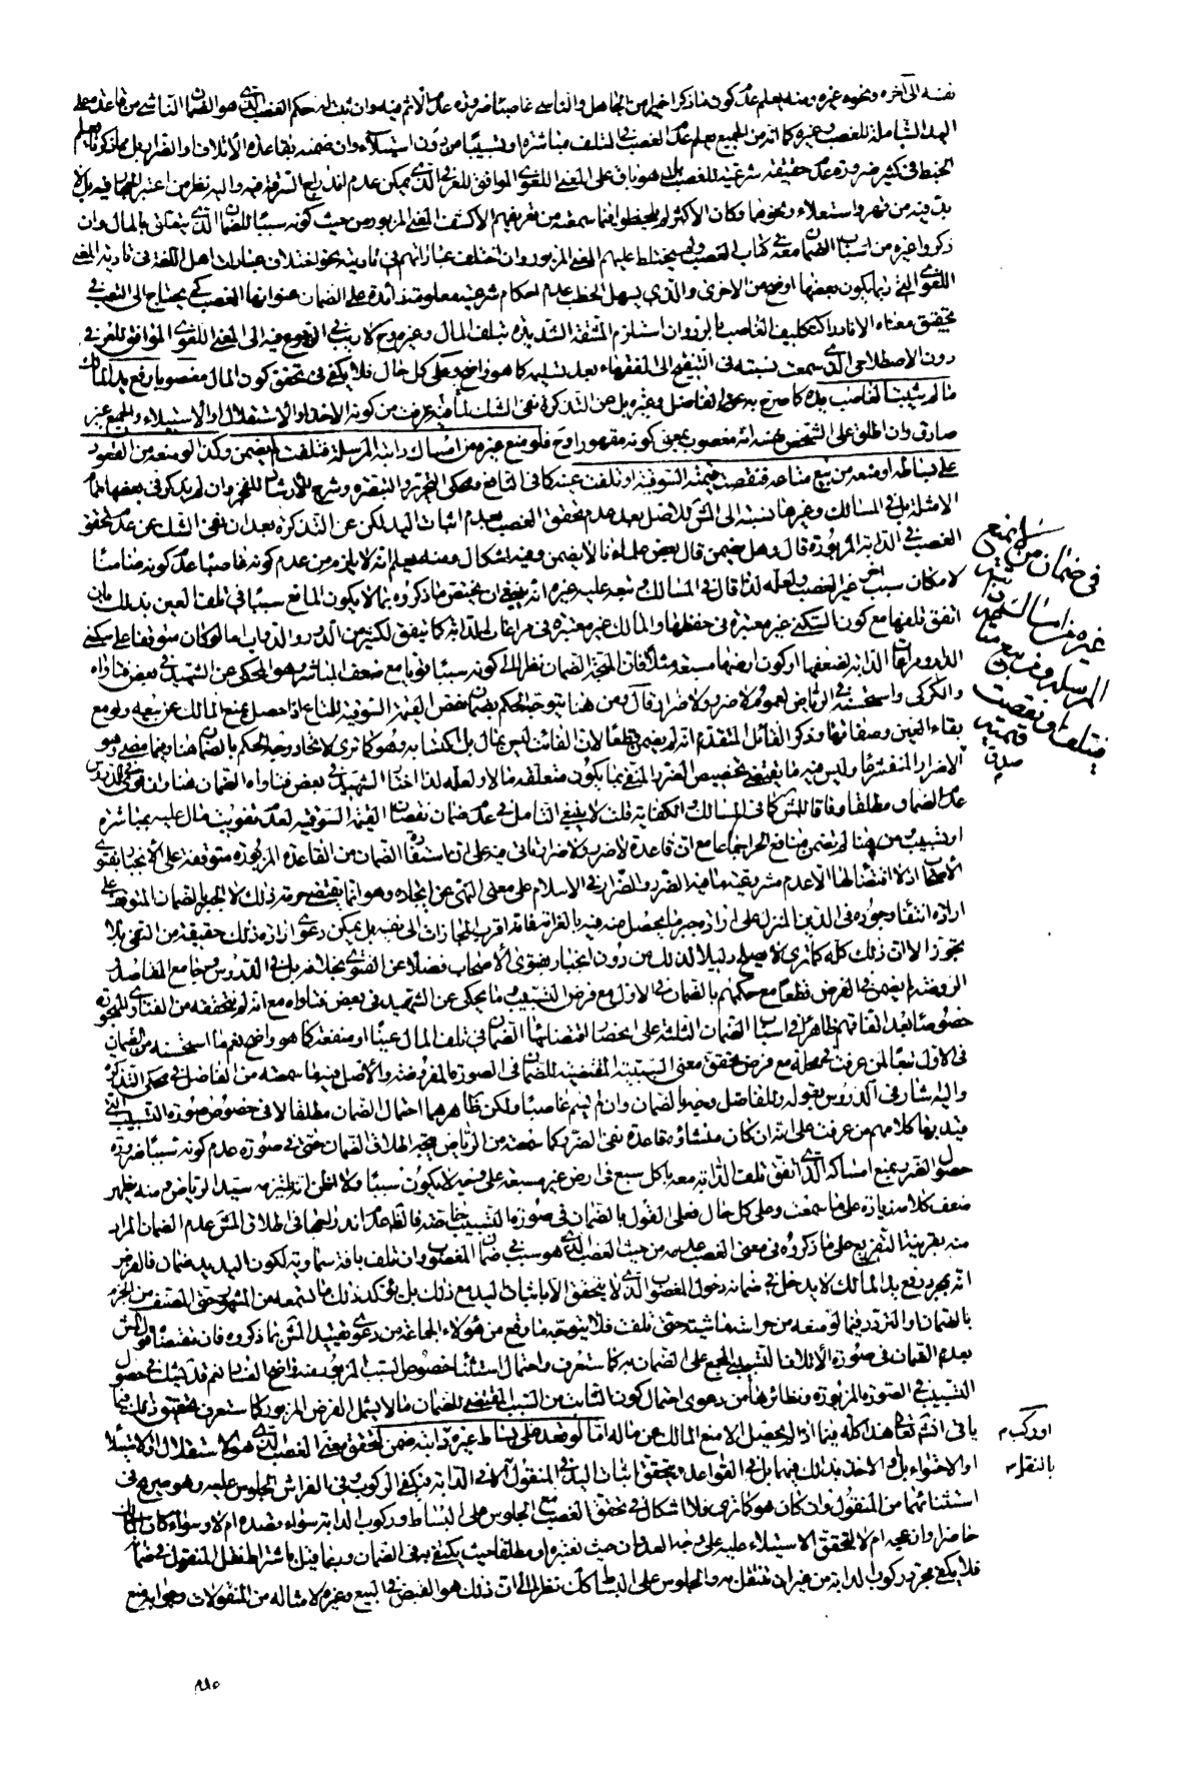 نفسه الى آخره ونحوه غيره ومنه يعلم عدم كون هنا ذكرا خيرا من الجاهل والناسي غاصبا ضرورة عدم الاثم فيه وان ثبت له حكم الغصب الذي هو الضمان الناشي من قاعدة على
اليد الشاملة للغصب وغيره كما انه من الجميع يعلم عدم الغصب في التلف مباشرة او تسبيبا من دون استيلاء وان ضمنه بقاعدة الاتلاف والضرار بل مما ذكرنا يعلم
الخبط في كثير ضرورة عدم حقيقة شرعية للغصب بل هو باق على المعنى اللغوي الموافق للعرفي الذي يمكن عدم اندراج السرقة فيه واليه نظر من اعتبر الجهار فيه بل لا
بد فيه من قهر واستعلاء ونحوهما وكان الاكثر لم يلحظوا فيما سمعته من تعريفهم الا كشف المعنى المزبور من حيث كونه سببا للضمان الذي يتعلق بالمال وان
ذكروا غيره من اسباب الضمان معه في كتاب الغصب ولم يختلط عليهم المعنى المزبور وان اختلفت عباراتهم في تأديته نحو اختلاف عبارات اهل اللغة في تأدية المعنى
اللغوي التي ربما يكون بعضها اوضح من الاخرى والذي يسهل الخطب عدم احكام شرعية معلومة زائدة على الضمان عنوانها الغصب كي يحتاج الى التعب في
تحقيق معناه الا تأكد تكليف الغاصب بالرد وان استلزم المشقة الشديدة بتلف المال وغيره وح لا ريب في الرجوع فيه الى المعنى اللغوي الموافق للعرفي
دون الاصطلاحي الذي سمعت نسبته في التنقيح الى الفقهاء بعد تسليمه كما هو واضح وعلى كل حال فلا يكفي في تحقق كون المال مغصوبا رفع يد المالك
ما لم يثبت الغاصب يده كما صرح به الفاضل وغيره بل عن التذكرة نفي الشك لما عرفت من كونه الاخذ او الاستقلال او الاستيلاء والجميع غير
صادق وان اطلق على الشخص نفسه انه مغصوب بمعنى كونه مقهورا وح فلو منع غيره من امساك دابته المرسلة فتلفت لم يضمن وكذا لو منعه من القعود
على بساطه او منعه من بيع متاعه فنقصت قيمته السوقية او تلفت عينه كما في النافع ومحكي التحرير والتبصرة وشرح الارشاد للفخر وان لم يذكر في بعضها تمام
الامثلة بل في المسالك وغيرها نسبته الى المش للاصل بعد عدم تحقق الغصب بعدم اثبات اليد لكن عن التذكرة بعد ان نفى الشك عن عدم تحقق
الغصب في الدابة المزبورة قال وهل يضمن قال بعض علمائنا لا يضمن وفيه اشكال ومنه يعلم انه لا يلزم من عدم كونه غاصبا عدم كونه ضامنا
لامكان سبب اخر غير الغصب ولعله لذا قال في المسالك وتبعه عليه غيره انه ينبغي ان يختص ما ذكروه بما لا يكون المانع سببا في تلف العين بذلك بان
اتفق تلفها مع كون السكنى غير معتبرة في حفظها والمالك غير معتبر في مراعات الدابة كما يتفق لكثير من الدور والدواب اما لو كان متوقفا على سكنى
الدار ومراعات الدابة لضعفها او كون ارضها مسبعة مثلا فان المتجه الضمان نظرا الى كونه سببا قويا مع ضعف المباشر وهو المحكي عن الشهيد في بعض فتاواه
والكركي واستحسنه في الرياض لعموم لا ضرر ولا ضرار قال ومن هنا يتوجه الحكم بضمان نقص القيمة السوقية للمتاع اذا حصل بمنع المالك عن بيعه ولو مع
بقاء العين وصفاتها وذكر القائل المتقدم انه لم يضمن قطعا لان الفائت ليس بمال بل اكتسابه وهو كما ترى لاتحاد وجه الحكم بالضمان هنا وفيما مضى وهو
الاضرار المنفي شرعا وليس فيه ما يقتضي تخصيص الضرر المنفي بما يكون متعلقه مالا ولعله لذا اختار الشهيد في بعض فتاواه الضمان هنا وقوى في الدروس
عدم الضمان مطلقا وفاقا للمش كما في المسالك والكفاية قلت لا ينبغي التامل في عدم ضمان نقصان القيمة السوقية لعدم تفويت مال عليه بمباشرة
او تسبيب ومن هنا لم تضمن منافع الحر اجماعا مع ان قاعدة لا ضرر ولا ضرار تأتي فيه على ان استفادة الضمان من القاعدة المزبورة متوقفة على الانجبار بفتوى
الاصحاب اذ لا اقتضاء لها الا عدم مشروعية ما فيه الضرر والضرار في الاسلام على معنى النهي عن ايجاده وهو انما يقتضي حرمة ذلك لا الجبر بالضمان المتوقف على
ارادة انتفاء وجوده في الدين المنزل على ارادة جبر ما يحصل منه فيه بالغرامة فانه اقرب المجازات الى نفيه بل يمكن دعوى ارادة ذلك حقيقة من النفي بلا
تجوز الا ان ذلك كله كما ترى لا يصلح دليلا لذلك من دون انجبار بفتوى الاصحاب فضلا عن الفتوى بخلافه بل في الدروس وجامع المقاصد
الروضة لم يضمن في الفرض قطعا مع حكمهم بالضمان في الاول مع فرض التسبيب ما يحكى عن الشهيد في بعض فتاواه مع انه لم نتحققه من الفتاوى الملحوقة
خصوصا بعد اتفاقهم ظاهرا في اسباب الضمان الثلثة على انحصار المقتضي للضمان في تلف المال عينا او منفعة كما هو واضح نعم ما استحسنه من الضمان
في الاول تبعا لمن عرفت في محله مع فرض تحقق معنى السببية المقتضية للضمان في الصورة المفروضة والاصل فيه ما سمعته من الفاضل في محكي التذكرة
واليه اشار في الدروس بقوله وللفاضل وجه بالضمان وان لم يسم غاصبا ولكن ظاهرهما احتمال الضمان مطلقا لا في خصوص صورة التسبيب التي
قيد بها كلامهم من عرفت على انه ان كان منشاؤه قاعدة نفي الضرر كما سمعته من الرياض يتجه اطلاق الضمان حتى في صورة عدم كونه تسبيبا ضرورة
حصول الضرر بمنع امساكه الذي اتفق تلف الدابة معه باكل سبع في ارض غير مسبعة على وجه لا يكون سببا ولا اظن انه يلتزمه سيد الرياض ومنه يظهر
ضعف كلامه زيادة على ما سمعت وعلى كل حال فعلى القول بالضمان في صورة التسبيب خاصة فالظ عدم اندراجها في اطلاق المش عدم الضمان المراد
منه بقرينة التفريع على ما ذكروه في معنى الغصب عدمه من حيث الغصب الذي هو سبب في ضمان المغصوب وان تلف بافة سماوية لكون اليد يد ضمان فالغرض
انه بمجرد رفع يد المالك لا يدخل في ضمانه دخول المغصوب الذي لا يتحقق الا باثبات اليد مع ذلك بل يؤكد ذلك ما تسمعه من المشهور حتى المصنف من الجزم
بالضمان والتردد فيما لو منعه من حراسة ماشيته حتى تلفت فلا يتوجه ما وقع من هؤلاء الجماعة من دعوى تقييد المتن بما ذكروه فان مقتضاه قول المش
بعدم الضمان في صورة الاتلاف التسبيبي المجمع على الضمان به كما ستعرف واحتمال استثناء خصوص السبب المزبور منه واضح الفساد نعم قد يشك في حصول
التسبيب في الصورة المزبورة ونظائرها من دعوى احتمال كون الثابت من السبب المقتضي للضمان ما لا يشمل الفرض المزبور كما ستعرف تحقيق ذلك فيما
ياتي انشم تعالى هذا كله فيما اذا لم يحصل الا منع المالك عن ماله اما لو قعد على بساط غيره دابته ضمن لتحقق معنى الغصب الذي هو الاستقلال او الاستيلاء
او الاحتواء بل والاخذ بذلك فيهما بل في القواعد ويتحقق اثبات اليد في المنقول بالنقل الا في الدابة فيكفي الركوب وفي الفراش الجلوس عليه وهو صريح في
استثنائهما من المنقول وان كان هو كما ترى ولا اشكال في تحقق الغصب مع الجلوس على البساط وركوب الدابة سواء قصده ام لا وسواء كان المالك
حاضرا وازعجه ام لا لتحقق الاستيلاء عليه على وجه العدوان حيث نعتبره او مطلقا حيث يكتفى به في الضمان وربما قيل باشتراط نقل المنقول في ضمان
فلا يكفي مجرد ركوب الدابة من غير ان تنتقل به والجلوس على البساط كك نظرا الى ان ذلك هو القبض في البيع وغيره لامثاله من المنقولات وجوابه منع
في ضمان من يمنع
غيره من امساك دابته
المرسلة
فتلفت او نقصت
قيمته
او ركب
بالنقل